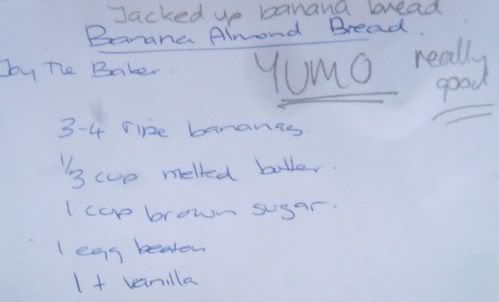 Jacked up banana bread
Banana Almond Bread.
Joy The Baker.
YUMO
really
good
3-4 ripe bananas.
1/3 cup melted butter.
1 cup brown sugar.
1 egg beaten
1 t vanilla